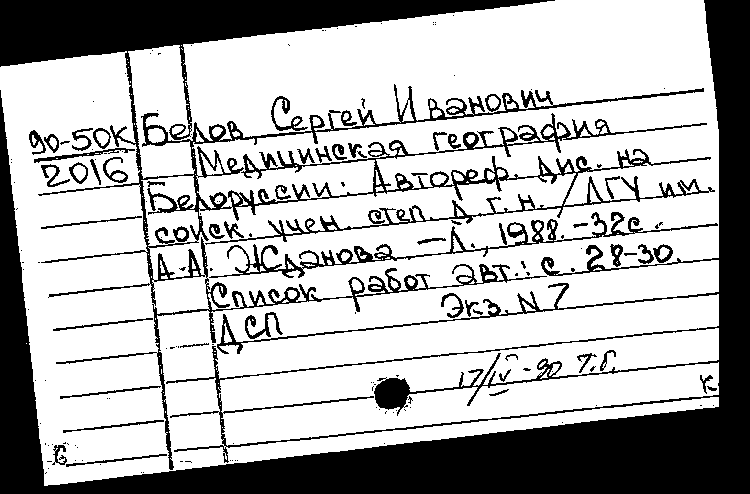 90-50К
2016
Белов, Сергей Иванович
Медицинская география
Белоруссии: Автореф. дис. на
соиск. учен. степ. д.г.н. / ЛГУ им.
А.А. Жданова. - Л., 1988. - 32с.
Список работ авт.: с. 28-30.
ДСП Экз. N 7
17/IV-90 Т.Б.
к